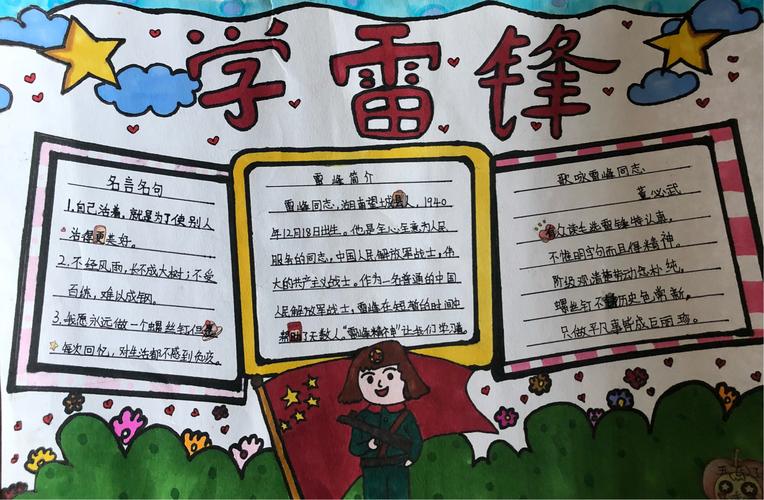 学雷锋
名言名句
1.自己活着,就是为了使别人
活得更美好。
2.不经风雨,长不成大树;不受
百练,难以成钢。
3.我愿永远做一个螺丝钉但
每次回忆,对生活都不感到负疚。
雷峰简介
雷峰同志,湖南望城县人,1940
年12月18日出生。他是全心全意为人民
服务的同志,中国人民解放军战士,伟
大的共产主义战士。作为一名普通的中国
人民解放军战士,雷峰在短暂的时间中
帮助了无数人。"雷峰精神"让我们学习。
歌咏雷峰同志
董必武
有众读毛选雷锋特认真。
不惟明字句而且得精神。
阶级观清楚劳动色朴纯。
螺丝钉不 历史色常新。
只做平凡事皆成巨丽珍。